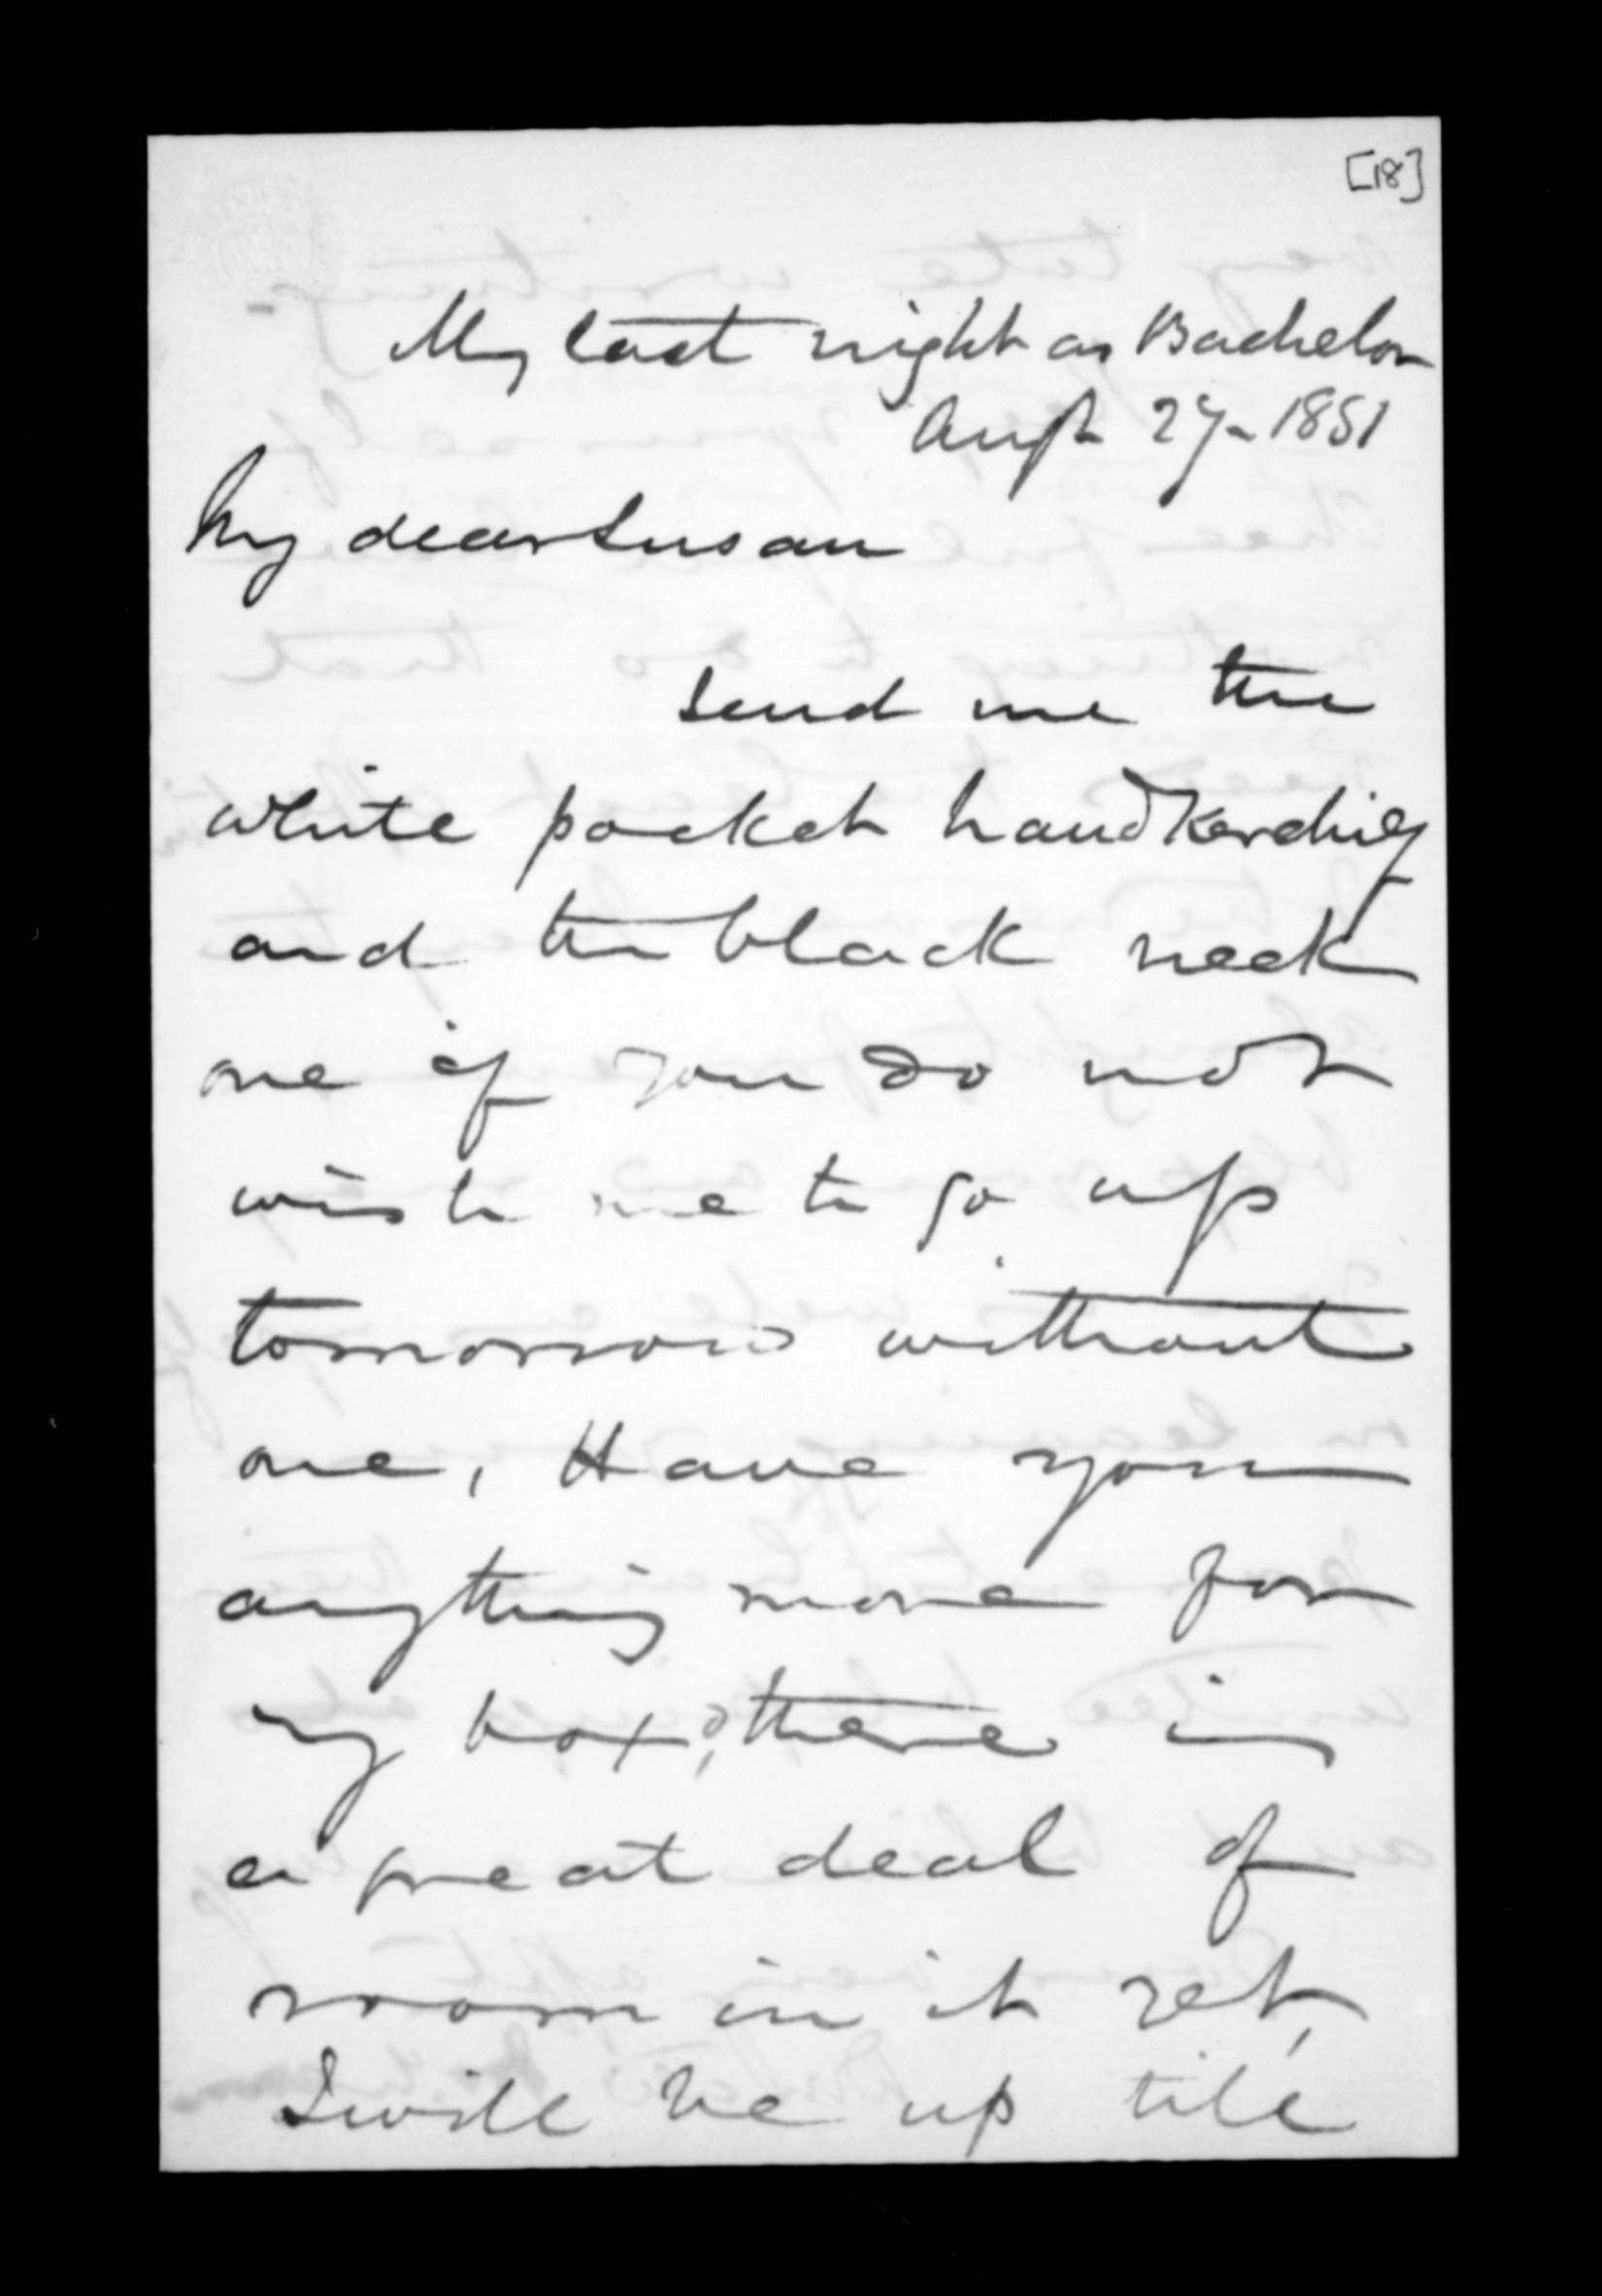 [18]
My last night as Bachelor
Augt 27- 1851
My dear Susan
Send me the
white pocket handkerchief
and the black neck
one if you do not
wish me to go up
tomorrow without
one, Have you
anything more for
my box?, there is
a great deal of
room in it yet,
I will be up till